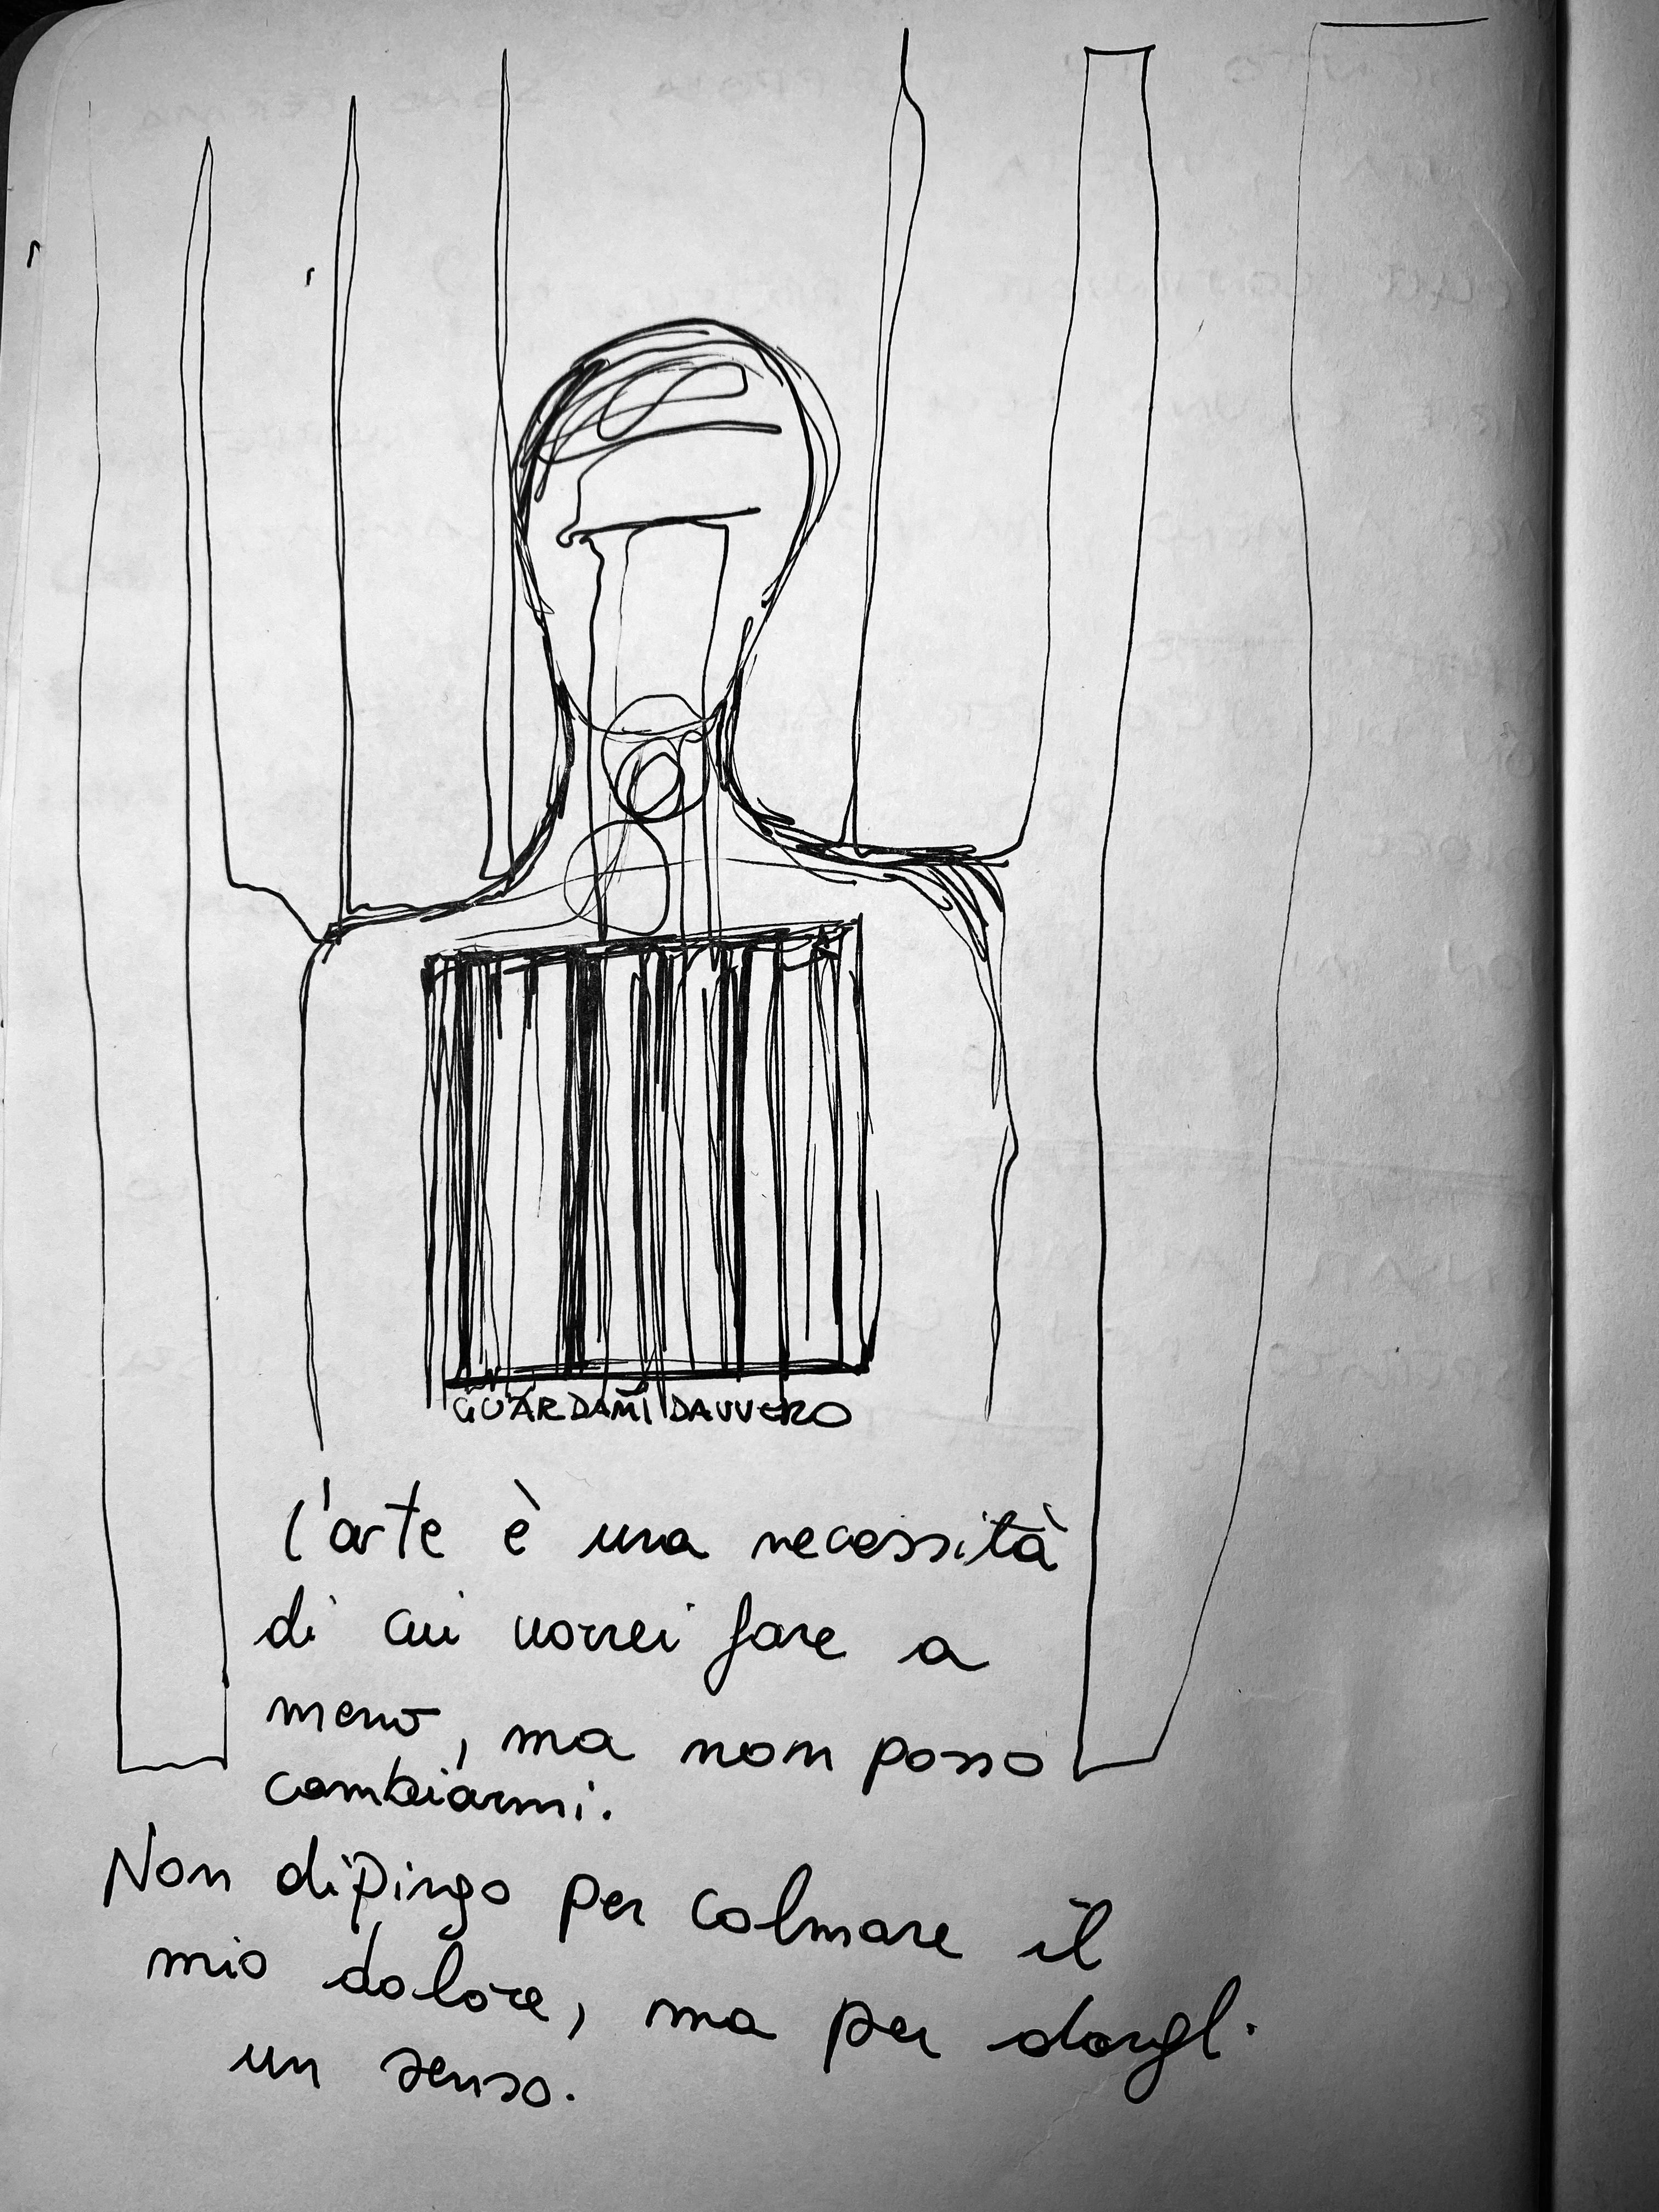 GUARDAMI DAVVERO
l'arte è una necessità
di cui vorrei fare a
meno, ma non posso
cambiarmi.
Non dipingo per colmare il
mio dolore, ma per dargli
un senso.